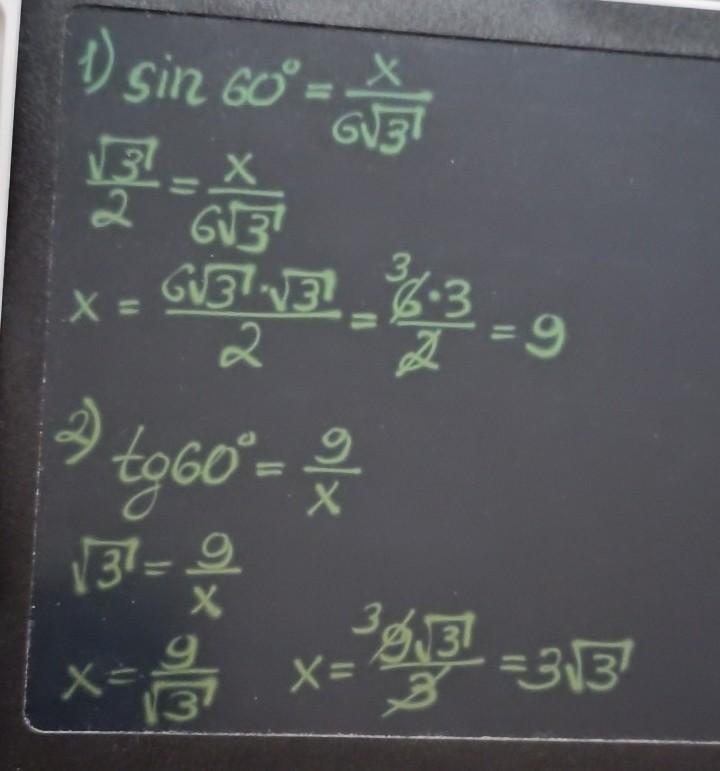 1) sin 60° = x/6√3
√3/2 = x/6√3
x = 6√3·√3/2 = 3 6·3/2 = 9
2) tg60° = 9/x
√3 = 9/x
x = 9/√3 x = 3 9√3/3 = 3√3